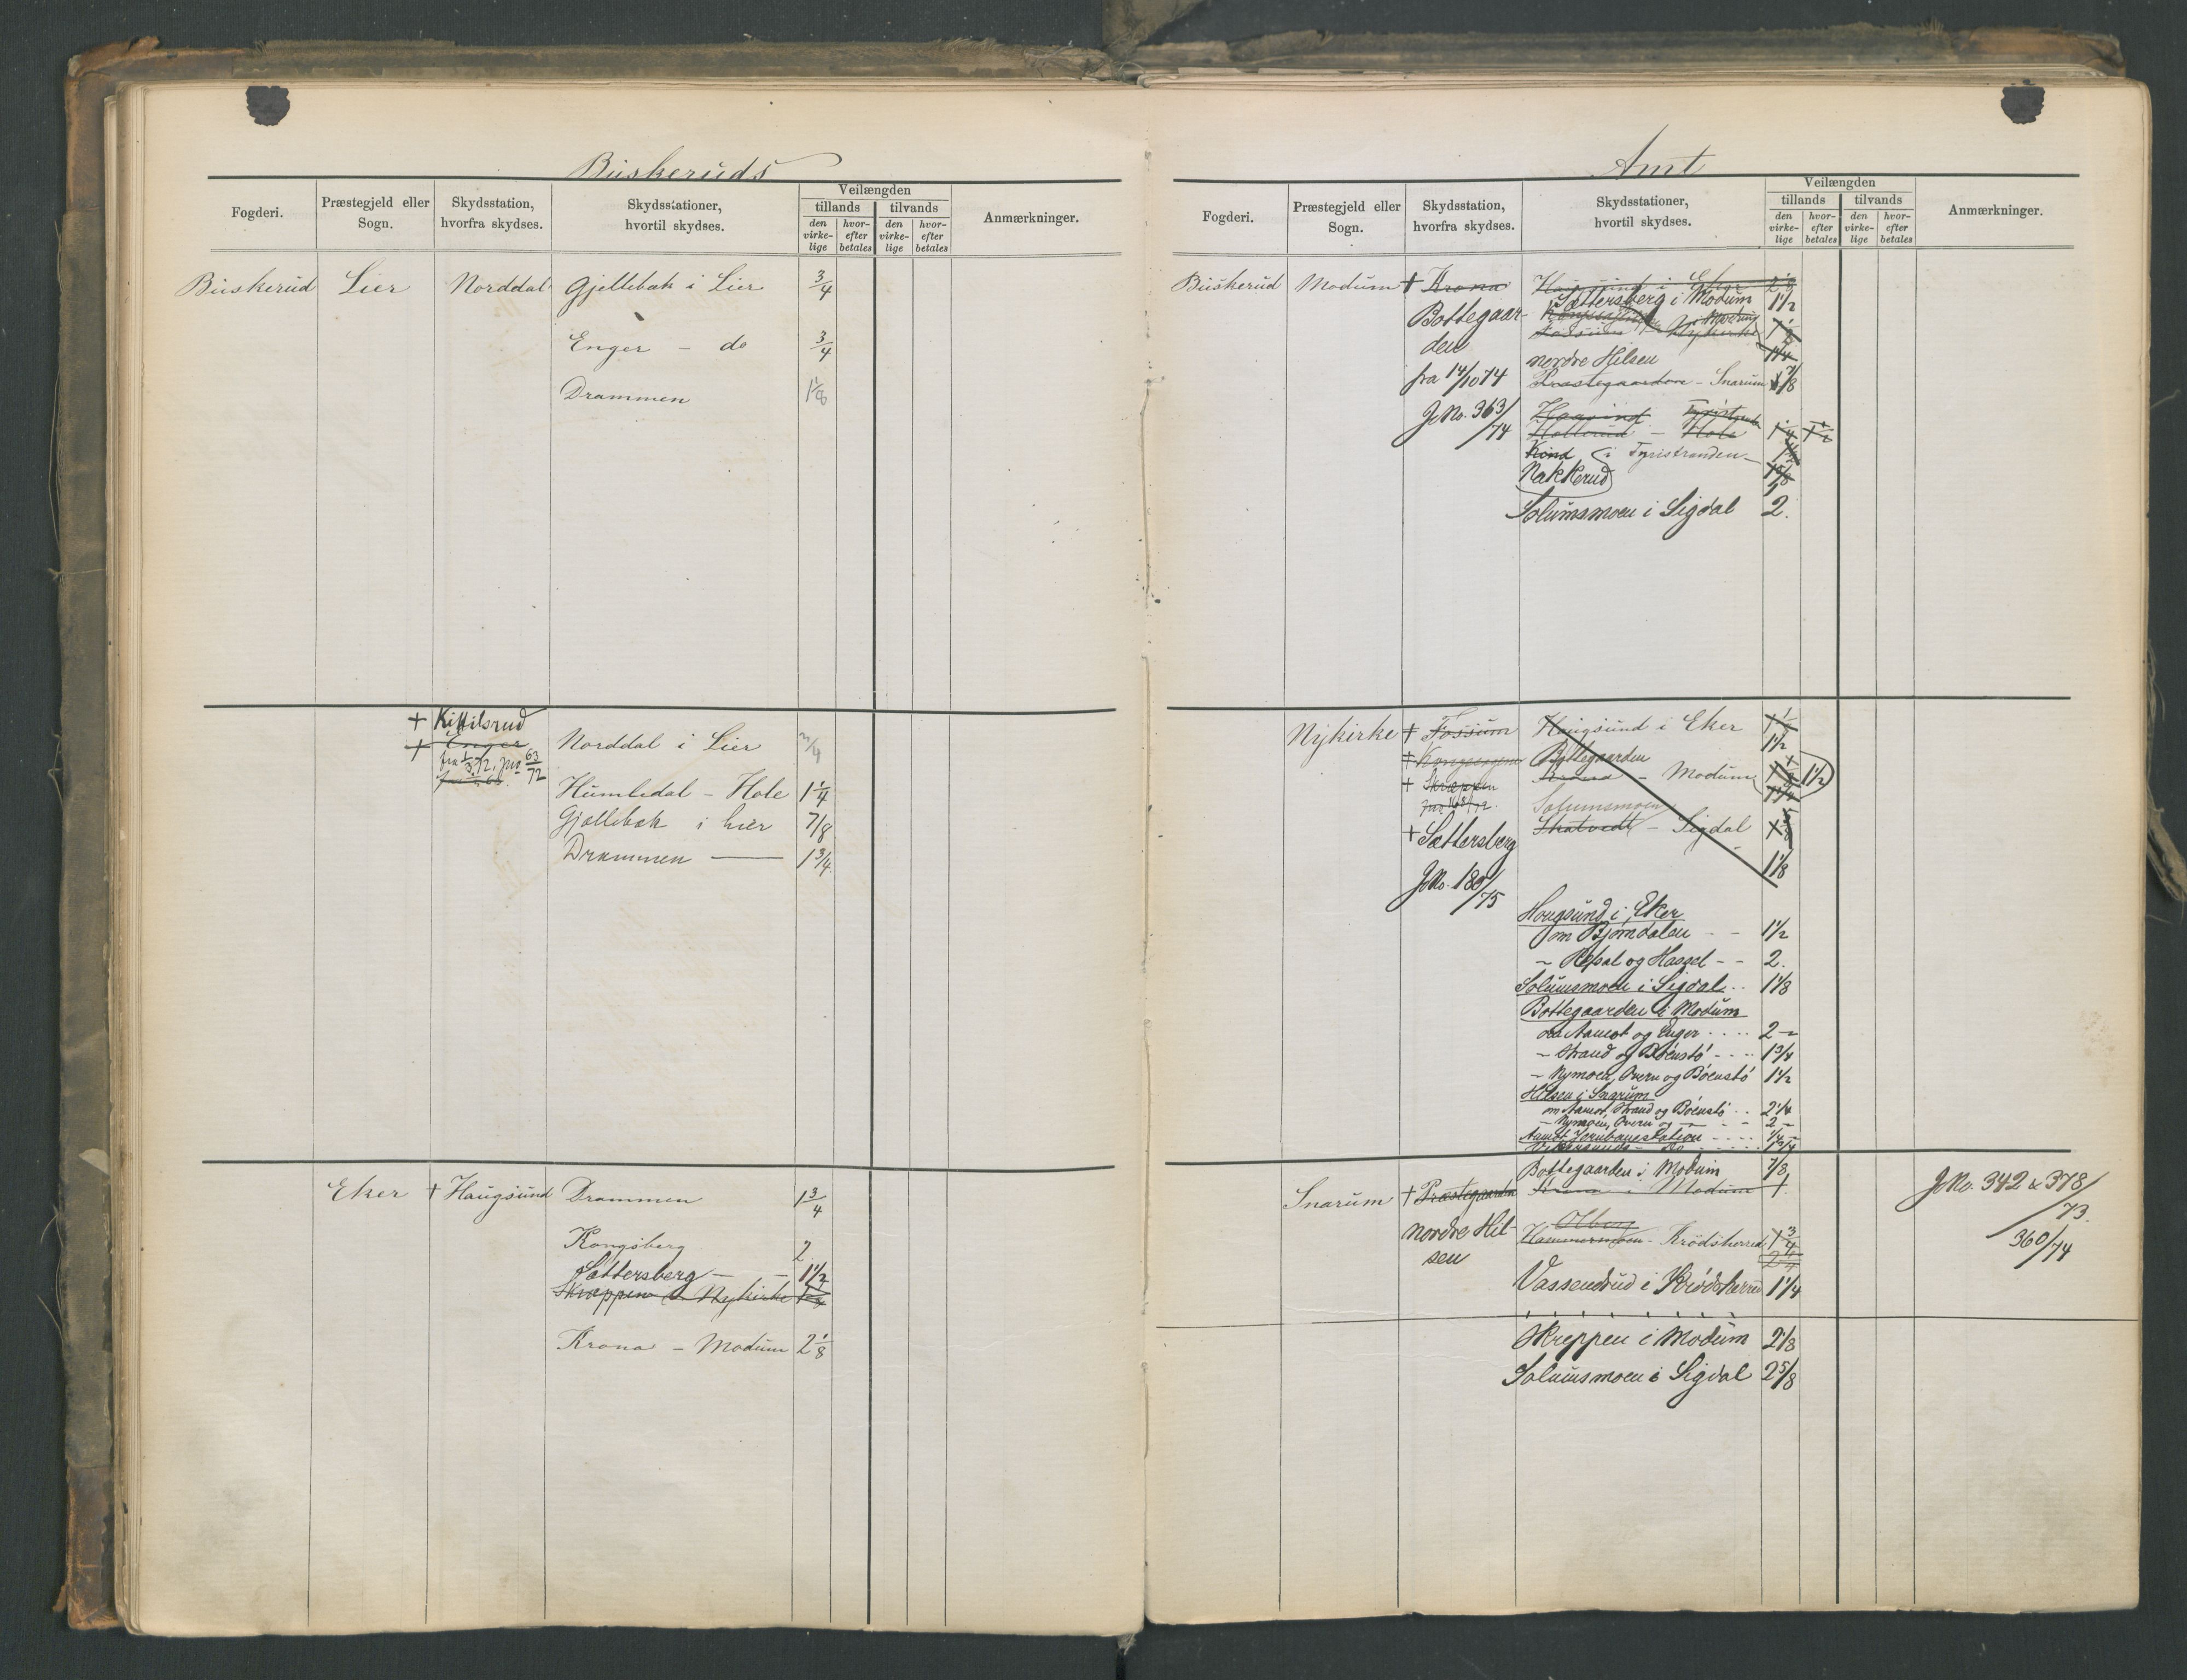 Buskeruds
Fogderi.
Præstegjeld eller Sogn.
Skydsstation, hvorfra skydses.
Skydsstationer, hvortil skydses.
Veilængden
tillands
tilvands
den virke-lige
hvor-efter betales
den virke-lige
hvor-efter betales
Anmærkninger.
Buskerud Lier Norddal Gjellebæk i Lier 3/4
Enger - do 3/4
Drammen 1 1/8
+ Kittilsrud
+ Enger Norddal i Lier 3/4
fra 1/3.72. Jno 63/72
Humledal - Hole 1 1/4
Gjellebæk i Lier 7/8
Drammen 1 3/4
Eker + Haugsund Drammen 1 3/4
Kongsberg 2
Sættersberg - - 1 1/2
Skreppen i Nykirke
Krona - Modum 2 1/8
Amt
Fogderi.
Præstegjeld eller Sogn.
Skydsstation, hvorfra skydses.
Skydsstationer, hvortil skydses.
Veilængden
tillands
tilvands
den virke-lige
hvor-efter betales
den virke-lige
hvor-efter betales
Anmærkninger.
Buskerud Modum + Krona Haugsund i Eker 2 1/8
Sættersberg i Modum 1 1/2
Bottegaar-
den
Fossum - Nykirke
nordre Hilsen
fra 14/10 74 Præstegaarden - Snarum 7/8
JNo. 363/74
Hollerud - Hole
i Tyristranden
Nakkerud
Solumsmoen i Sigdal 2.
Nykirke + Fossum Haugsund i Eker
1 1/2
+ Kongssagene Bottegaarden
Krona - Modum 1 1/2
+ Skreppen
Solumsmoen
Skatvedt - Sigdal
+ Sættersberg
1 1/8
JNo. 180/75
Hougsund i Eker
om Bjørndalen - - 1 1/2
- Hassel - - 2.
Solumsmoen i Sigdal .. 1 1/8
Bottegaarden i Modum
om Aamot og Enger .... 2 -
- Strand og Bøenstø .... 1 3/4
- Nymoen, Overn og Bøenstø 1 1/2
Hilsen i Snarum
om Aamot, Strand og Bøenstø .. 2 1/4
- Nymoen, Overn og - - 2 -
Aamot Jernbanestation .... 1/4 -
Bottegaarden i Modum 7/8
Snarum + Præstegaarden Krona i Modum 1
JNo. 342 & 378/73.
nordre Hil-
sen
Olberg
Hammersmoen - Krødsherred 1 3/4
360/74
Vassendrud i Krødsherred 1 1/4
Skreppen i Modum 2 1/8
Solumsmoen i Sigdal 2 5/8